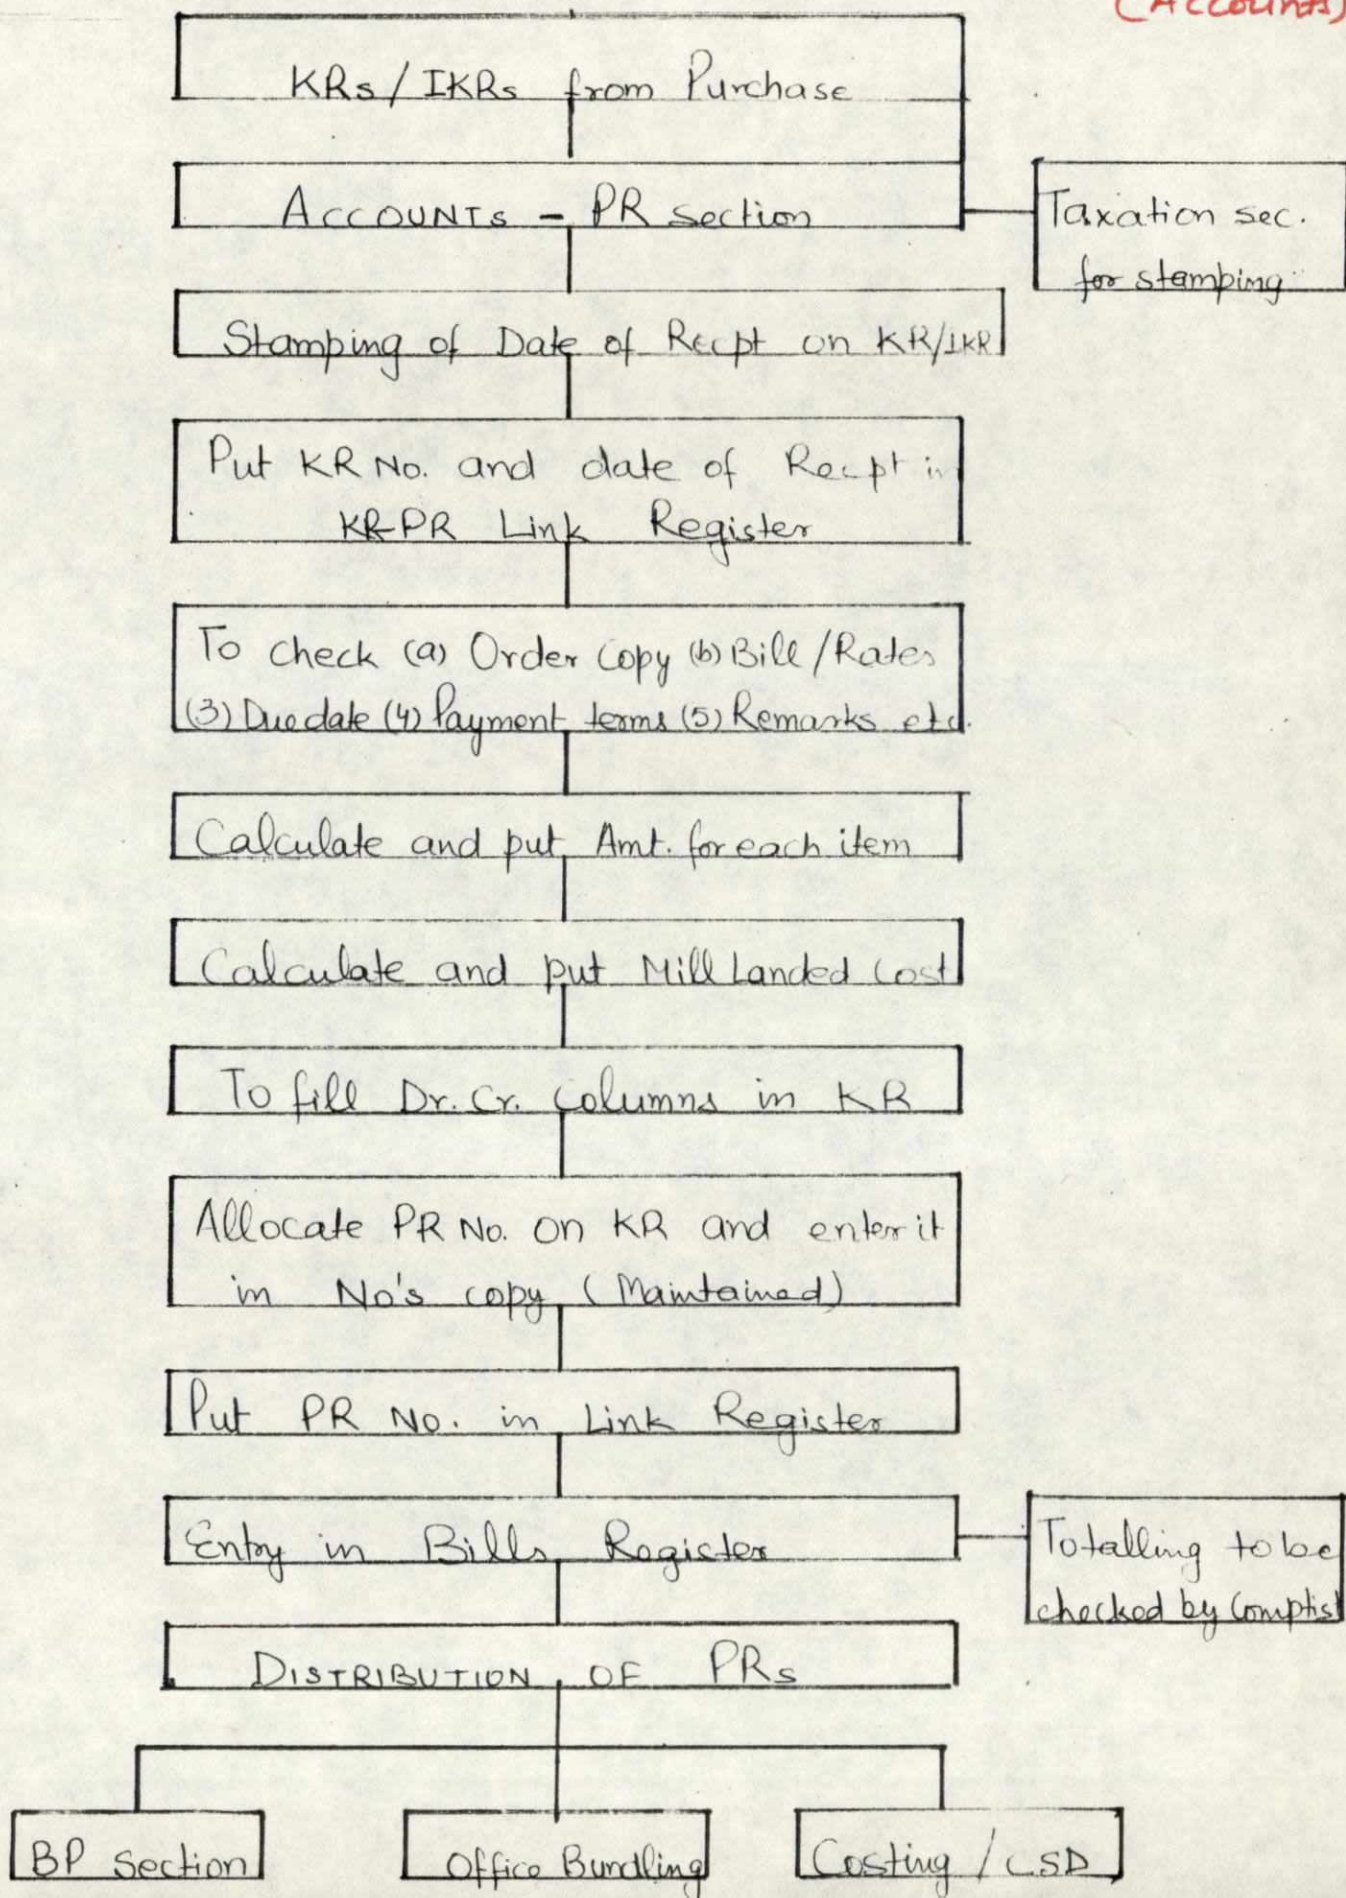 (Accounts)
KRs / IKRs from Purchase
ACCOUNTs - PR section
Taxation sec.
for stamping
Stamping of Date of Recpt on KR/IKR
Put KR No. and date of Recpt in
KR-PR Link Register
To check (a) Order Copy (b) Bill / Rates
(3) Due date (4) Payment terms (5) Remarks etc.
Calculate and put Amt. for each item
Calculate and put Mill Landed Cost
To fill Dr. Cr. Columns in KR
Allocate PR No. on KR and enter it
in No's copy (Maintained)
Put PR No. in Link Register
Entry in Bills Register
Totalling to be
checked by Comptist
DISTRIBUTION OF PRs
BP Section
Office Bundling
Costing / CSD